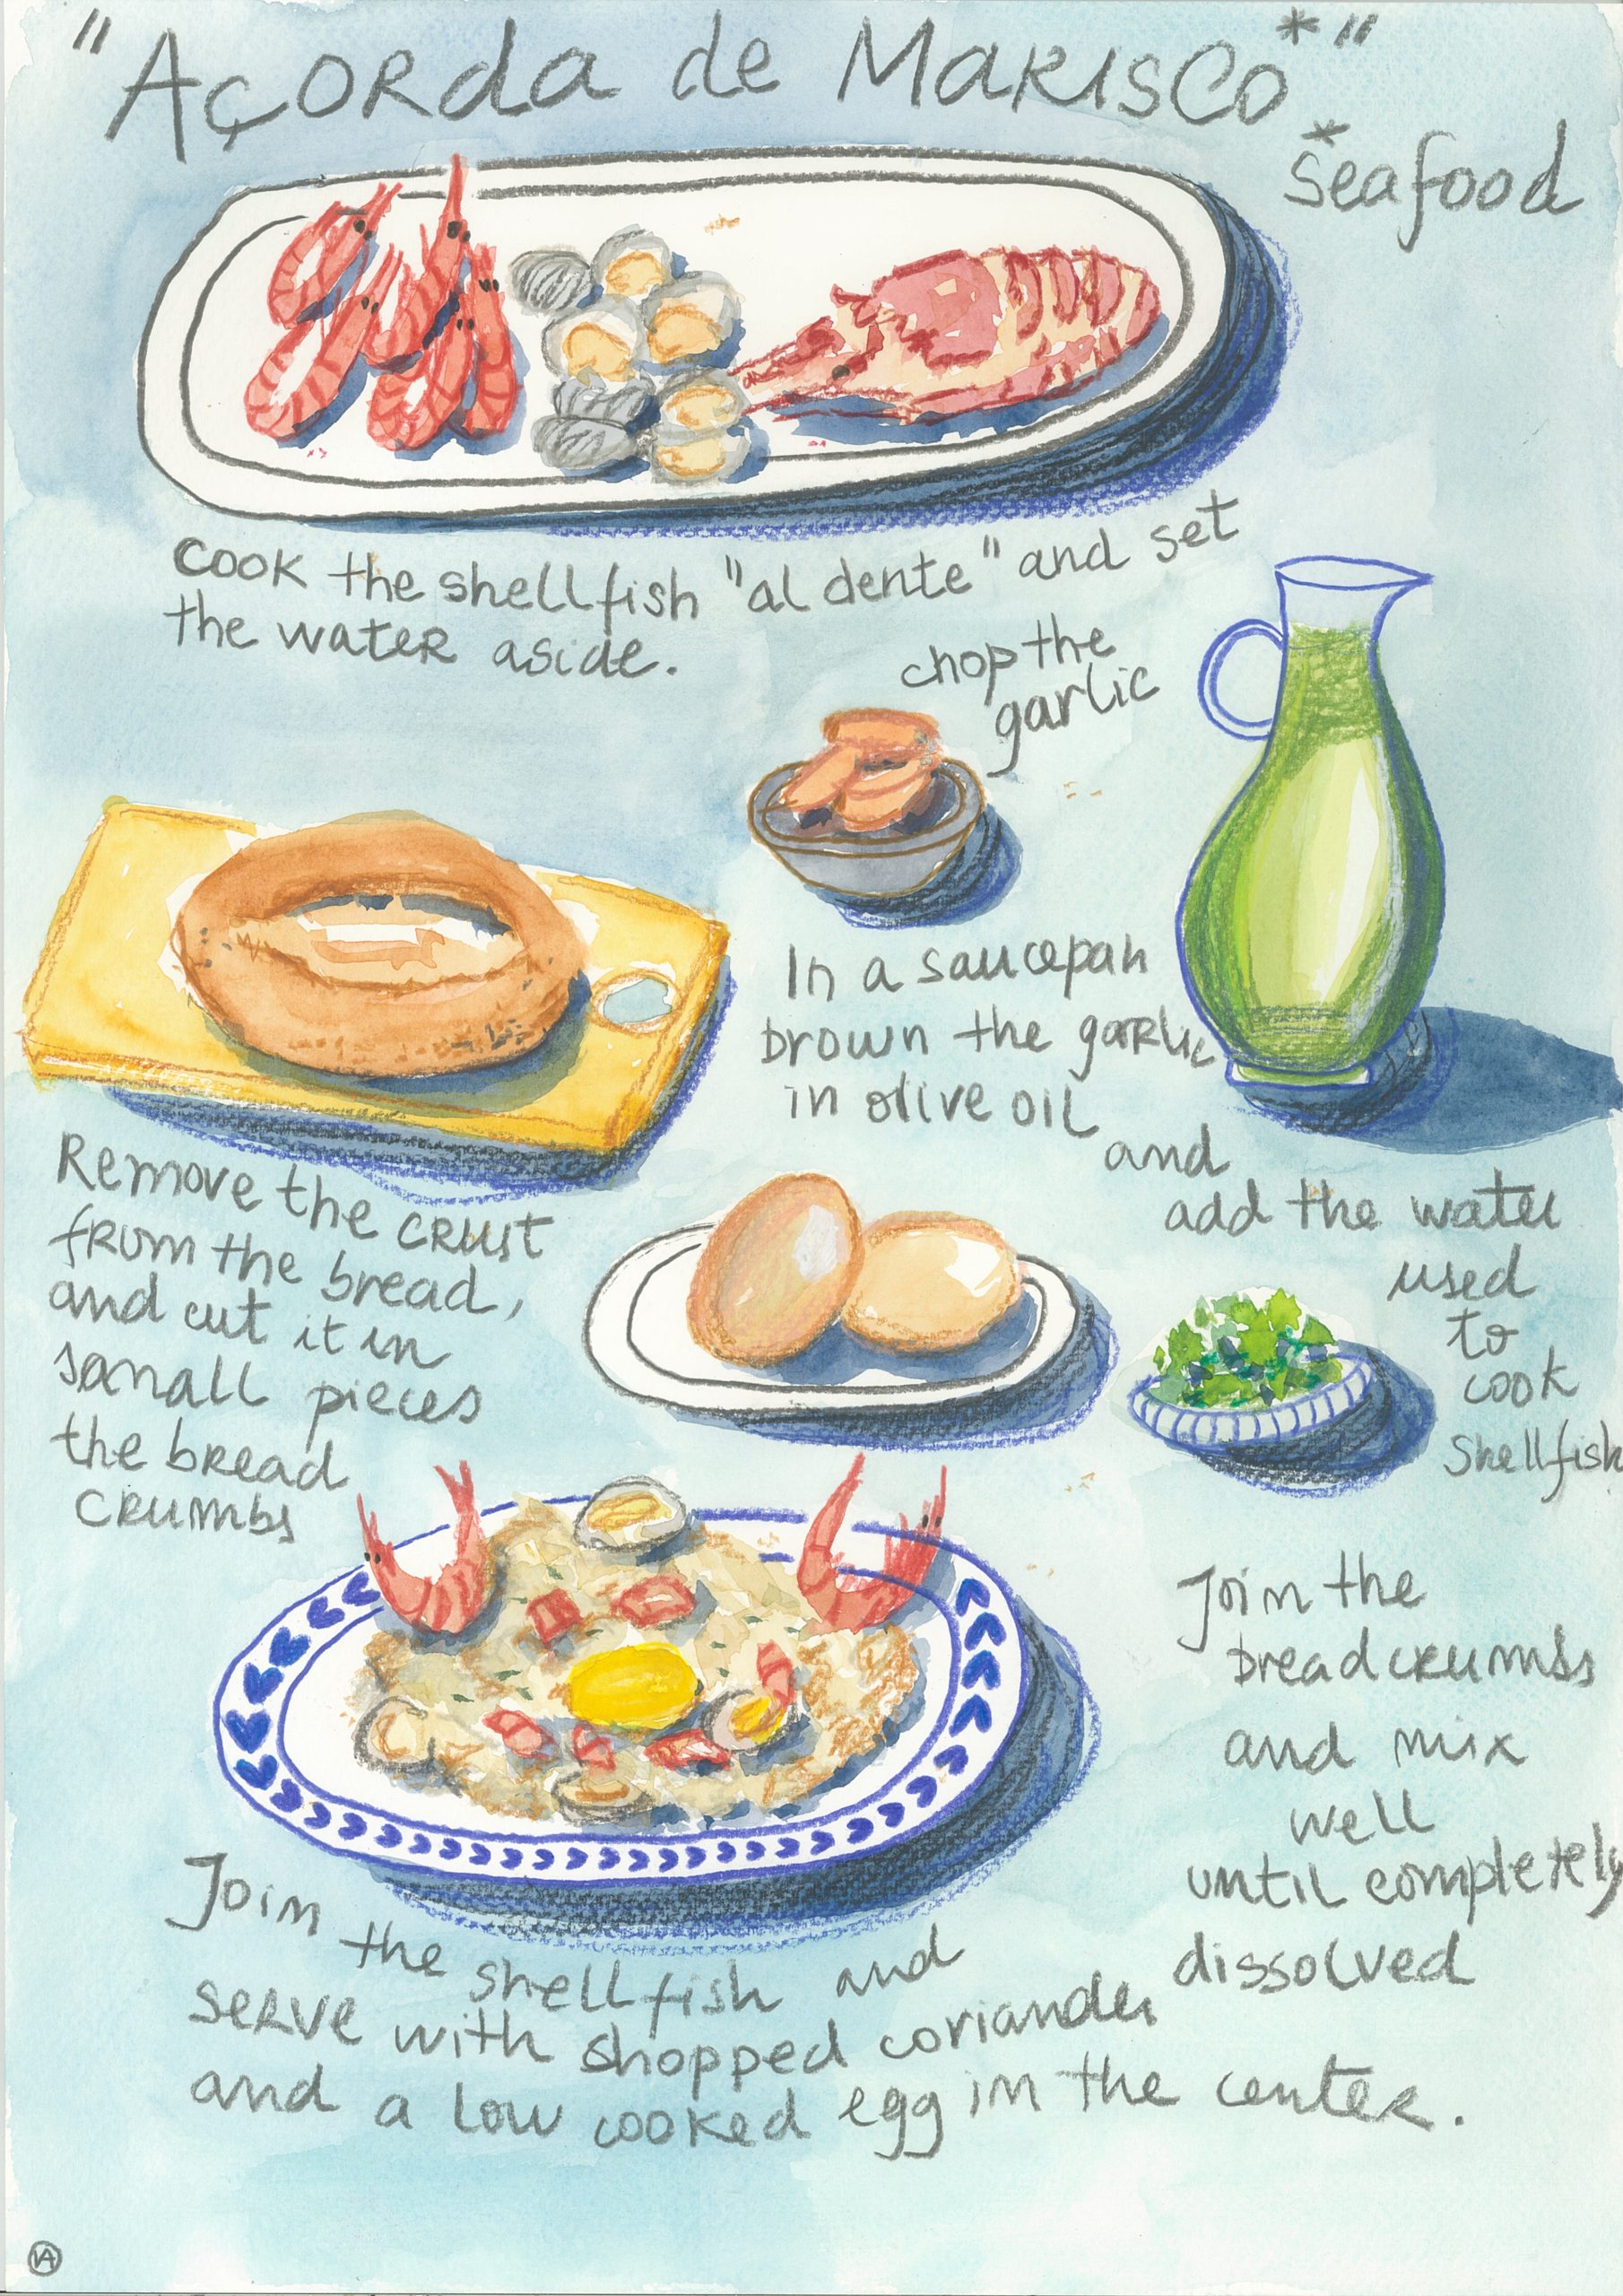 "Açorda de Marisco*"
*Seafood
Cook the shellfish "al dente" and set
the water aside.
chop the
garlic
In a saucepan
brown the garlic
in olive oil
and
add the water
used
to
cook
Shellfish
Remove the crust
from the bread,
and cut it in
sanall pieces
the bread
crumbs
Join the
breadcrumbs
and mix
well
until completely
dissolved
Join
the shellfish and
serve with shopped coriander
and a low cooked egg in the center.